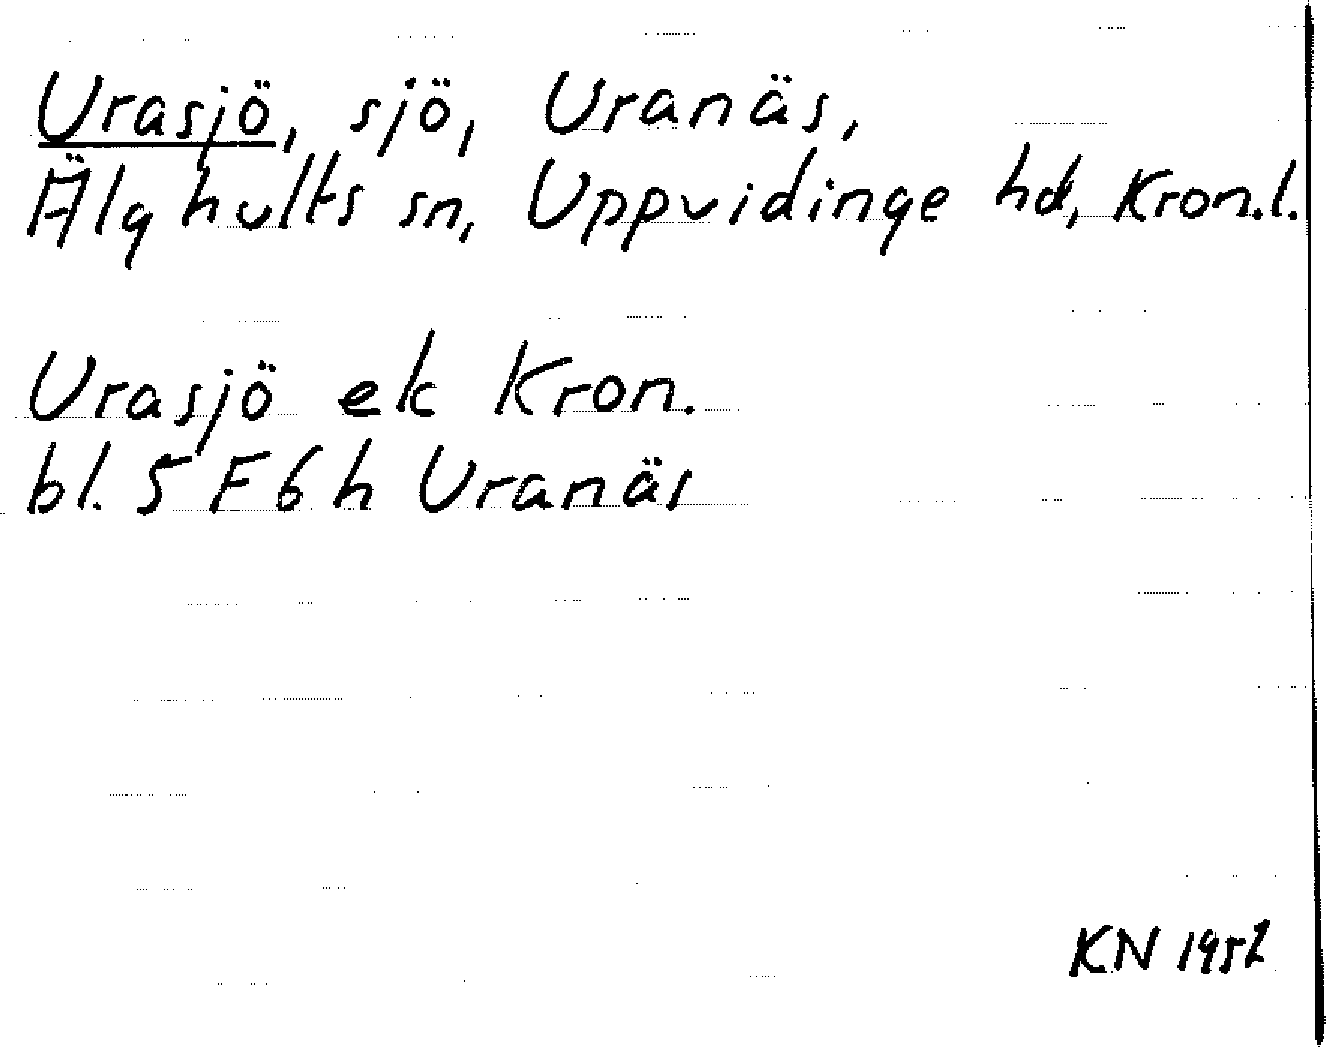 Urasjö, sjö, Uranäs,
Älghults sn, Uppvidinge hd, Kron.l.
Urasjö ek Kron.
bl. 5 F 6 h Uranäs
KN 1952